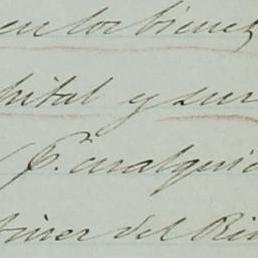 en los bienes
pital y sus
p.ª cualquie
tines del Rei